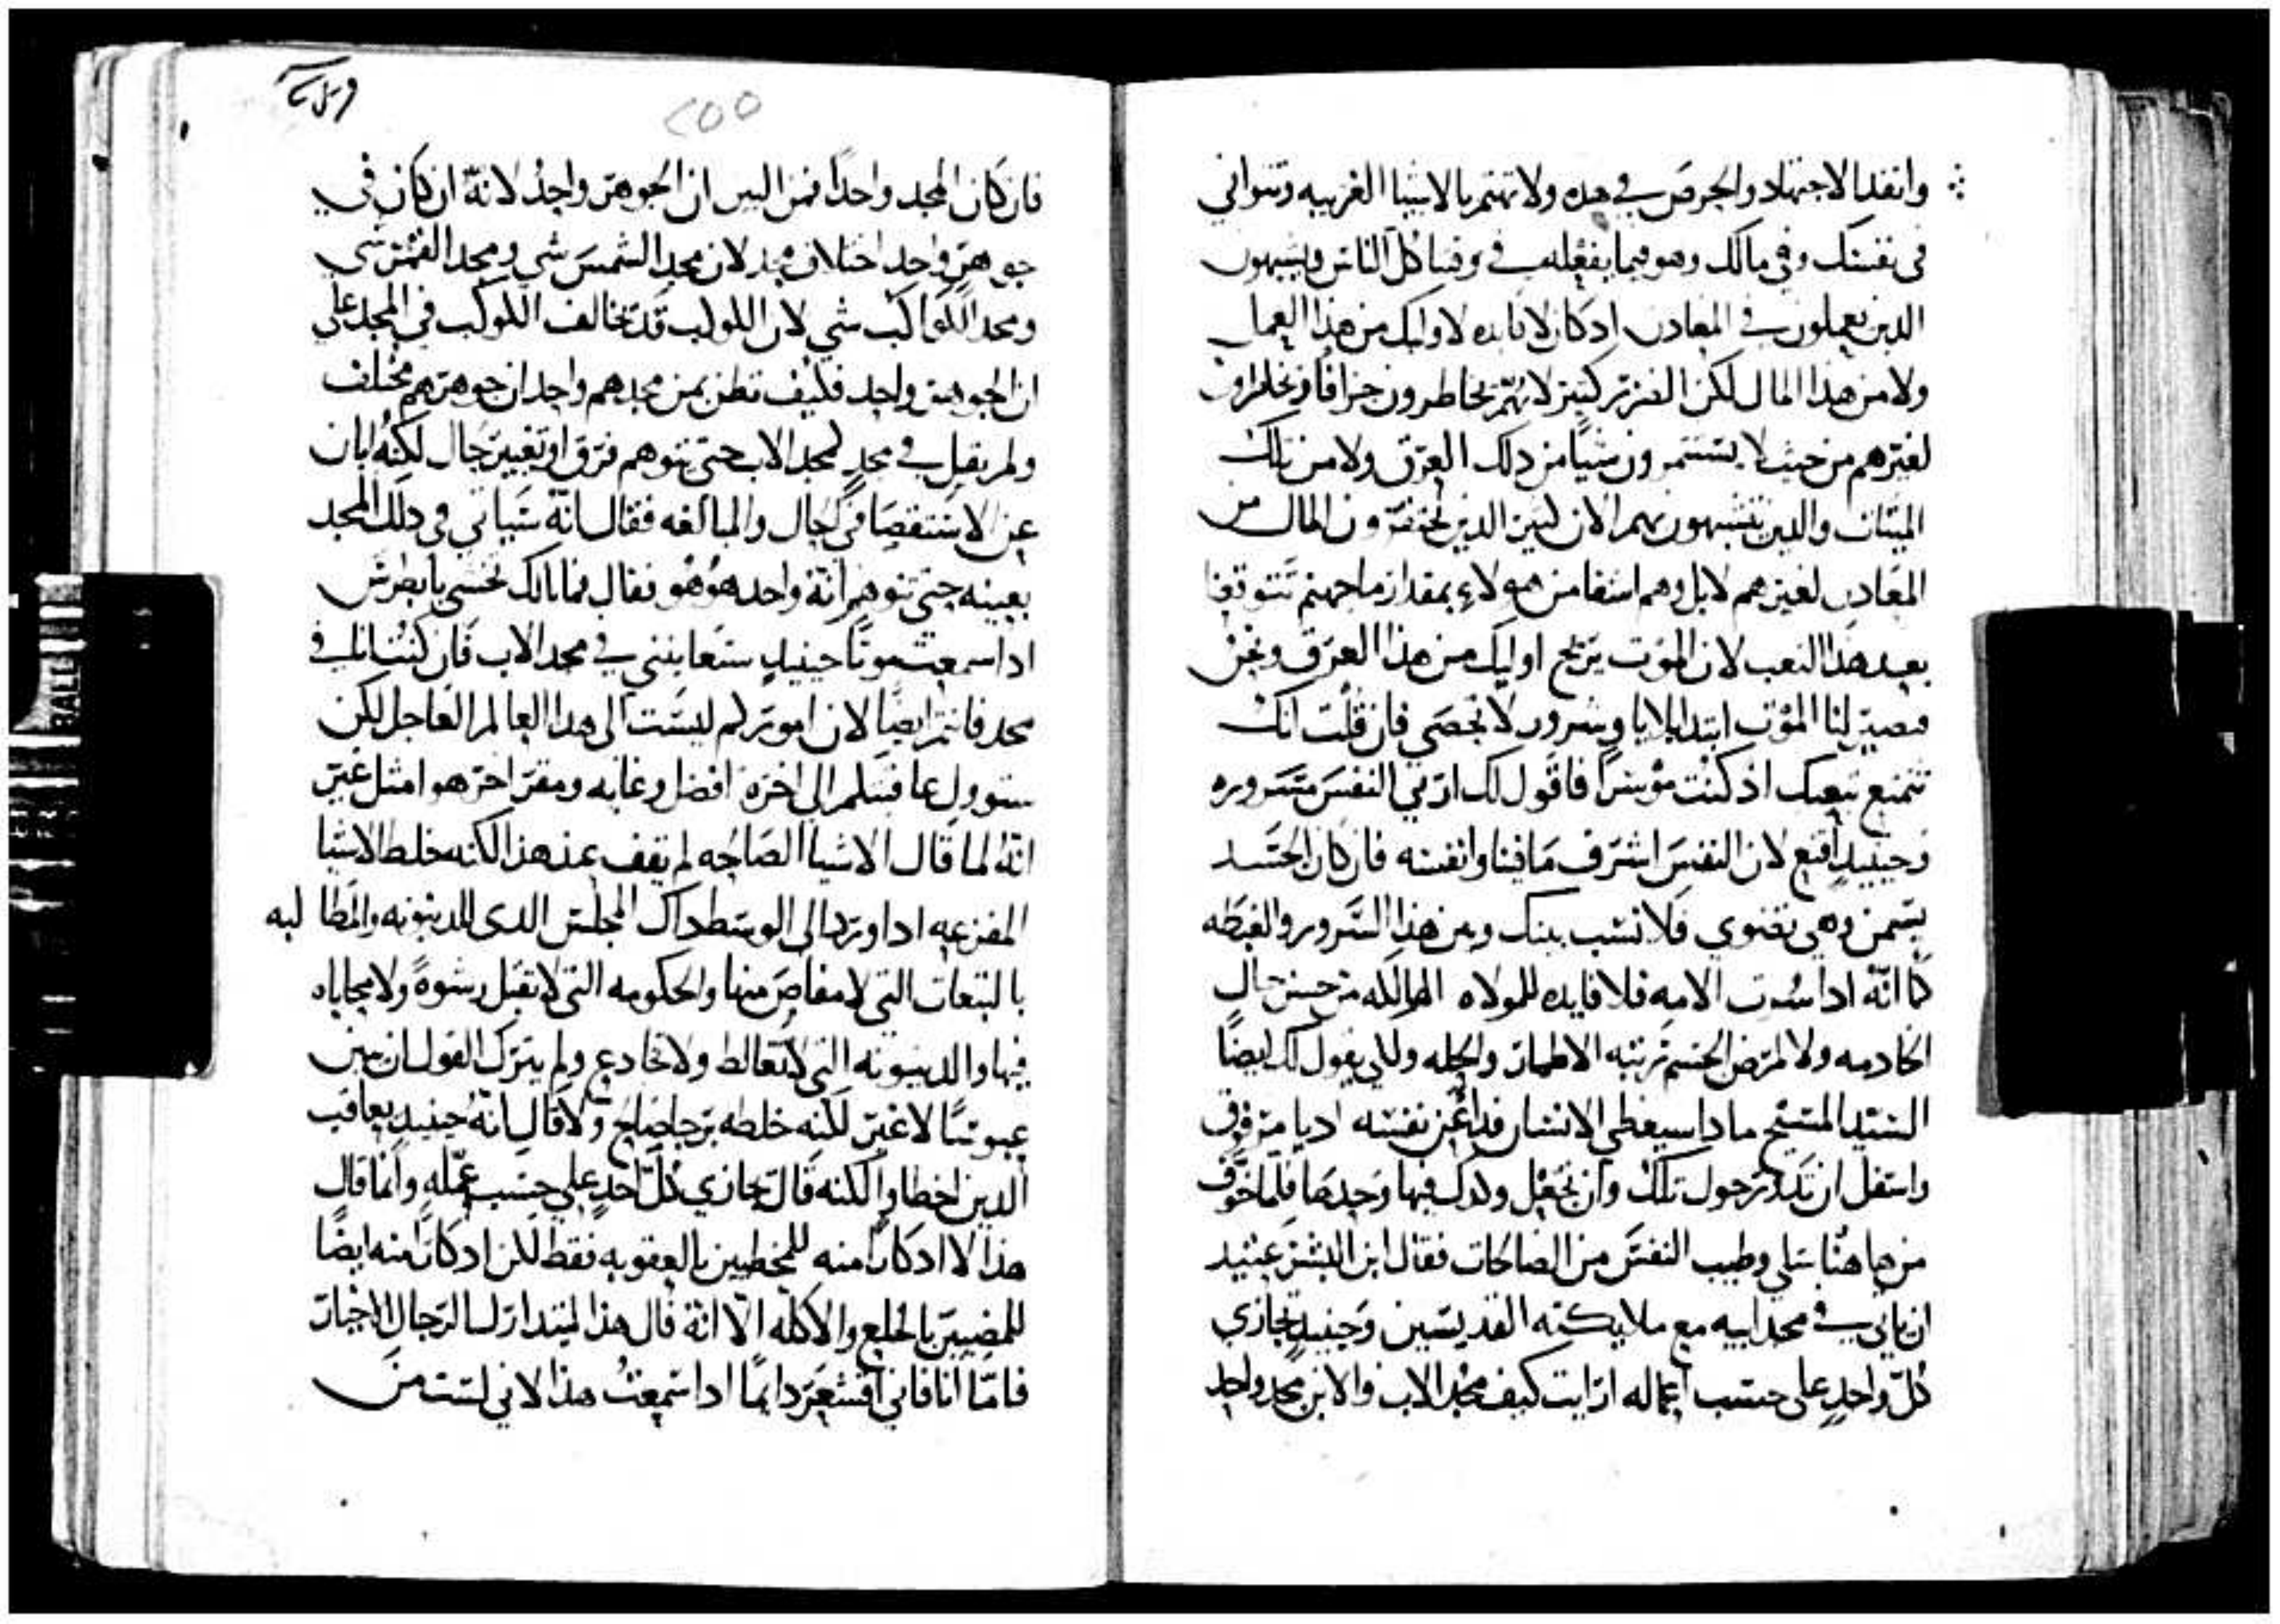 وانفد الاجتهاد والحرص في هده ولا تهتم بالاشيا الغريبه وتتواني
في نفسك وفي مالك وهو فيما يفعله في وقتنا كل الناس ويشبهون
الدين يعملون في المعادن ادكان لا فايده لاوليك من هذا العمل
ولا من هذا المال لكن الضرر كثير لانهم يخاطرون جزافا ويخاطرون
لغيرهم من حيث لا يستثمرون شيا من دلك العرق ولا من تلك
الميتات والدين يتشبهون بهم الان كثير الدين يحتفرون المال من
المعادن لغيرهم لا بل وهم اشقا من هولاء بمقدار ما جهنم تتوقعنا
بعد هدا التعب لان الموت يريح اوليك من هذا العرق ونحن
فيصير لنا الموت ابتدا بلايا وشرور لا تحصي فان قلت انك
تتمتع بتعبك اذ كنت موسرا فاقول لك ارني النفس مسروره
وحينيد اقنع لان النفس اشرف ما فينا وانفسه فان كان الجسد
يسمن وهي تضوي فلا نسب بينك وبين هذا السرور والغبطه
كما انه ادا سُرت الامه فلا فايده للمولاه الهالكه من حسن حال
الخادمه ولا لمرض الجسم تربته الاطمار والحله وللي يقول لك ايضا
السيد المسيح مادا سيعطي الانسان فدا عن نفسه
واستقل ان تدور حول تلك وان تجعل وكدك فيها وحدها فلما خوف
من هاهنا سلي وطيب النفس من الصالحات فقال ابن البشر عتيد
ان ياتي في مجد ابيه مع ملايكته القديسين وحينيد يجازي
كل واحد على حسب اعماله ارايت كيف مجد الاب والابن مجد واحد
٢٥٥
فان كان المجد واحدا فمن البين ان الجوهر واحد لانه ان كان في
جوهر واحد اختلاف مجد لان مجد الشمس شي ومجد القمر شي
ومجد الكواكب شي لان الكوكب قد تخالف الكوكب في المجد على
ان الجوهر واحد فكيف تظن بمن مجدهم واحد ان جوهرهم مختلف
ولم يقل في مجد كمجد الاب حتى تتوهم فرق او تغيير حال لكنه ابان
عن الاستقصا في الحال والمبالغه فقال انه سياتي في دلك المجد
بعينه حتى تتوهم انه واحد هو هو فقال فما لك تخشي يا بطرس
ادا سمعت موتا حينيد ستعاينني في مجد الاب فان كنت انا في
مجد فانتم ايضا لان اموركم ليست الى هدا العالم العاجل لكن
ستوول عاقبتكم الى اخرة افضل وغايه ومقر اخر هو امثل غير
انه لما قال الاشيا الصالحه لم يقف عند هذا لكنه خلط الاشيا
المفزعه اد اورد الى الوسط داك المجلس الدي للدينونه والمطالبه
بالتبعات التي لا مفاص منها والحكومه التي لا تقبل رشوة ولا محاباه
فيها والدينونه التي لا تغالط ولا تخادع ولم يترك القول ان يبين
عبوسًا لا غير لكنه خلطه برجا صالح ولا قال انه حينيد يعاقب
الدين اخطاوا لكنه قال يجازي كل احد علي حسب عمله وانما قال
هذا لا ادكارًا منه للمخطيين بالعقوبه فقط لكن ادكارا منه ايضا
للمصيبين بالخلع والاكله الا انه قال هذا ليتدارك الرجال الاخيار
فاما انا فاني اقشعر دايما ادا سمعت هذا لاني لست من